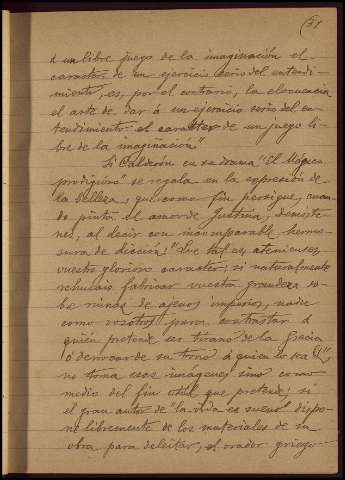 (31
á un libre juego de la imaginación el
caracter de un ejercicio serio del entendi-
miento, es, por el contrario, la elocuencia
el arte de dar á un ejercicio serio del en-
tendimiento el caracter de un juego li-
bre de la imaginación"
Si Calderón en su drama "El Mágico
prodigioso" se regala en la expresión de
la belleza, que como fin persigue, cuan-
do pinta el amor de Justina, Demóste-
nes, al decir con incomparable hermo-
sura de dicción: "Que tal es, atenienses,
vuestro glorioso caracter; si naturalmente
rehusais fabricar vuestra grandeza so-
bre ruinas de agenos imperios, nadie
como vosotros para contrastar á
quién pretende ser tirano de la Grecia
ó derrocar de su trono á quien lo sea (1)",
no toma esas imágenes sino como
medio del fin útil que pretende; si
el gran autor de "la vida es sueño" dispo-
ne libremente de los materiales de su
obra para deleitar, el orador griego